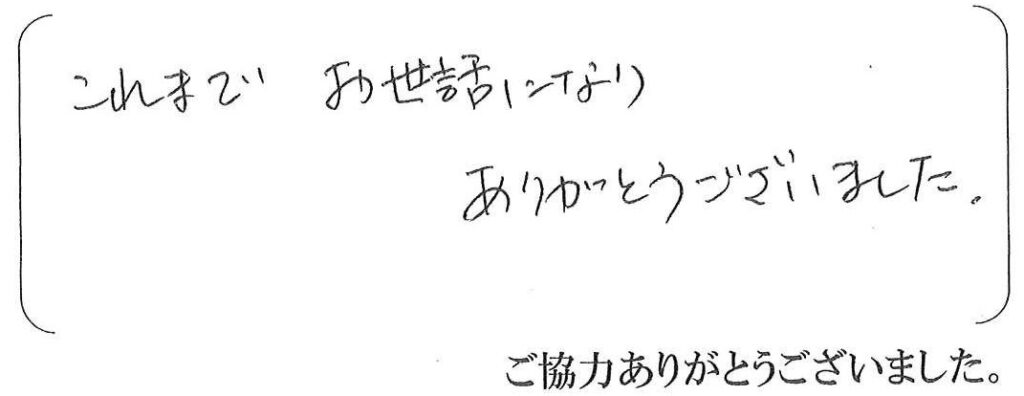 これまで お世話になり
ありがとうございました。
ご協力ありがとうございました。